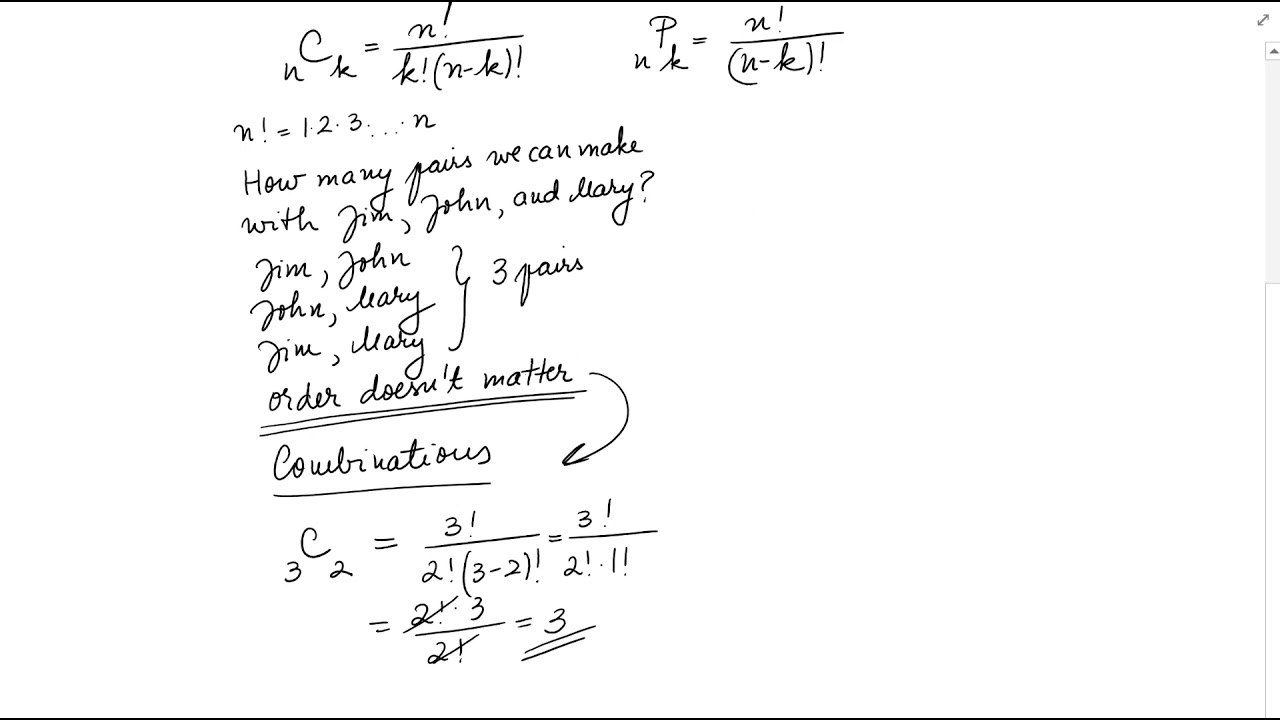 nCk = n! / k!(n-k)!    nPk = n! / (n-k)!
n! = 1·2·3·...·n
How many pairs we can make
with Jim, John, and Mary?
Jim, John
John, Mary } 3 pairs
Jim, Mary
order doesn't matter
Combinations
3C2 = 3! / 2!(3-2)! = 3! / 2!·1!
= 2!·3 / 2! = 3